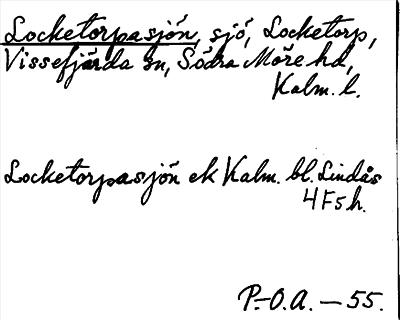 Locketorpasjön, sjö, Locketorp,
Vissefjärda sn, Södra Möre hd,
Kalm. l.
Locketorpasjön ek Kalm. bl. Lindås
4F5h.
P.-O.A. — 55.